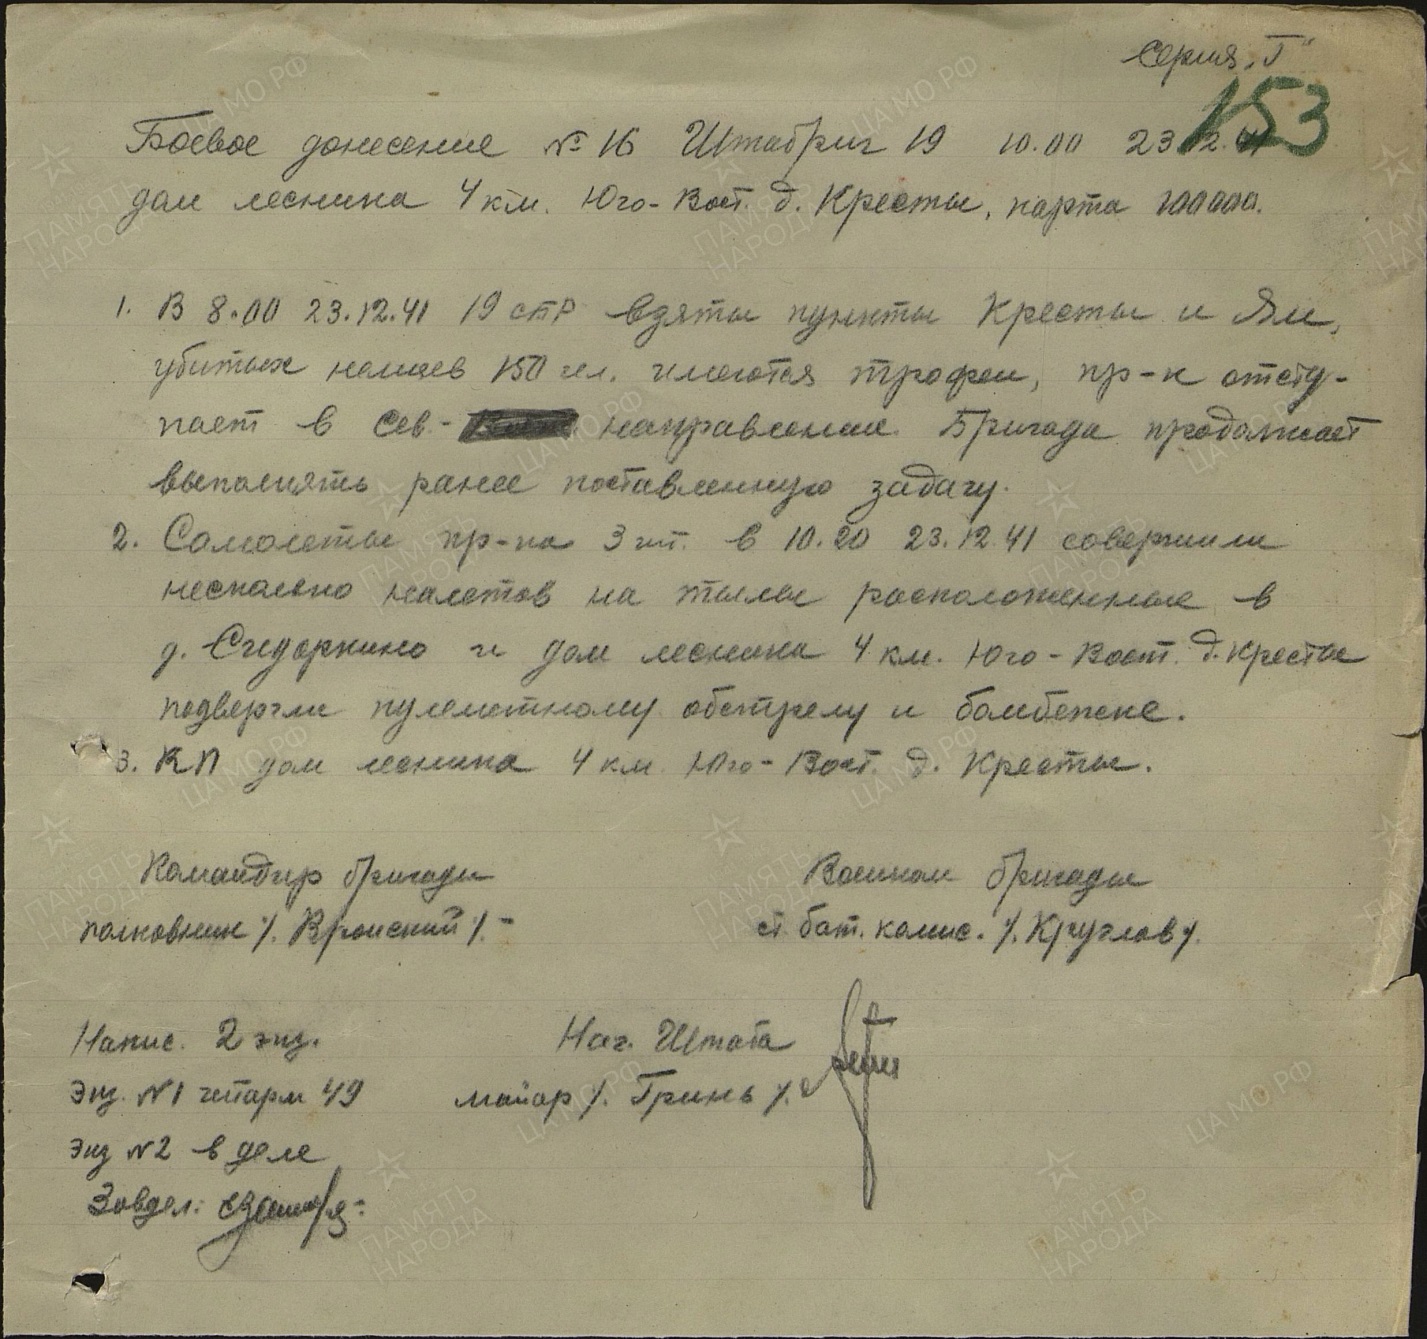 Серия „Г"
153
Боевое донесение № 16 Штабриг 19 10.00 23.12.41
дом лесника 4 км. Юго-Вост. д. Кресты, карта 100000.
1. В 8.00 23.12.41 19 СТР взяты пункты Кресты и Ям,
убитых немцев 150 чел. имеются трофеи, пр-к отсту-
пает в Сев- направлении. Бригада продолжает
выполнять ранее поставленную задачу.
2. Самолеты пр-ка 3 шт. в 10.20 23.12.41 совершили
несколько налетов на тылы расположенные в
д. Сидоркино и дом лесника 4 км. Юго-Вост. д. Кресты
подвергли пулеметному обстрелу и бомбежке.
3. КП дом лесника 4 км. Юго-Вост. д. Кресты.
Командир бригады
полковник /. Вронский /.-
Военком бригады
ст. бат. комис. /. Круглов /.
Напис. 2 экз.
Экз. №1 штарм 49
Экз №2 в деле
Завдел:
Нач. Штаба
майор /. Гринь /.
ПАМЯТЬ НАРОДА
ЦА МО РФ